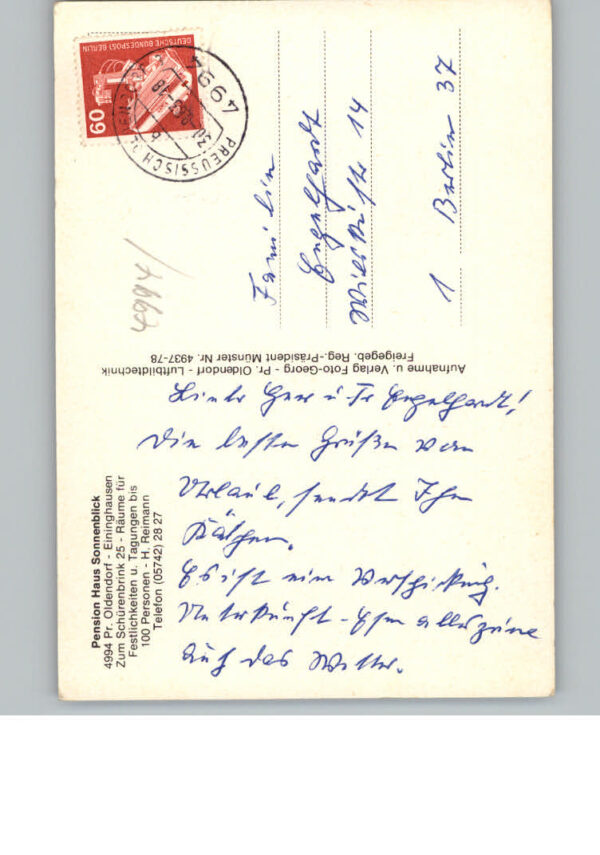 Pension Haus Sonnenblick
4994 Pr. Oldendorf - Eininghausen
Zum Schürenbrink 25 - Räume für
Festlichkeiten u. Tagungen bis
100 Personen - H. Reimann
Telefon (05742) 28 27
Liebe Herr u Fr Engelhardt!
Die besten Grüße vom
Urlaub, sendet Ihn
Käthen.
Es ist eine
Unterkunft - Essen alles prima
Auch das Wetter.
Aufnahme u. Verlag Foto-Georg - Pr. Oldendorf - Luftbildtechnik
Freigegeb. Reg.-Präsident Münster Nr. 4937-78
DEUTSCHE BUNDESPOST BERLIN
60
4994
PREUSSISCH OLDENDORF
Familie
Engelhardt
14
1 Berlin 37